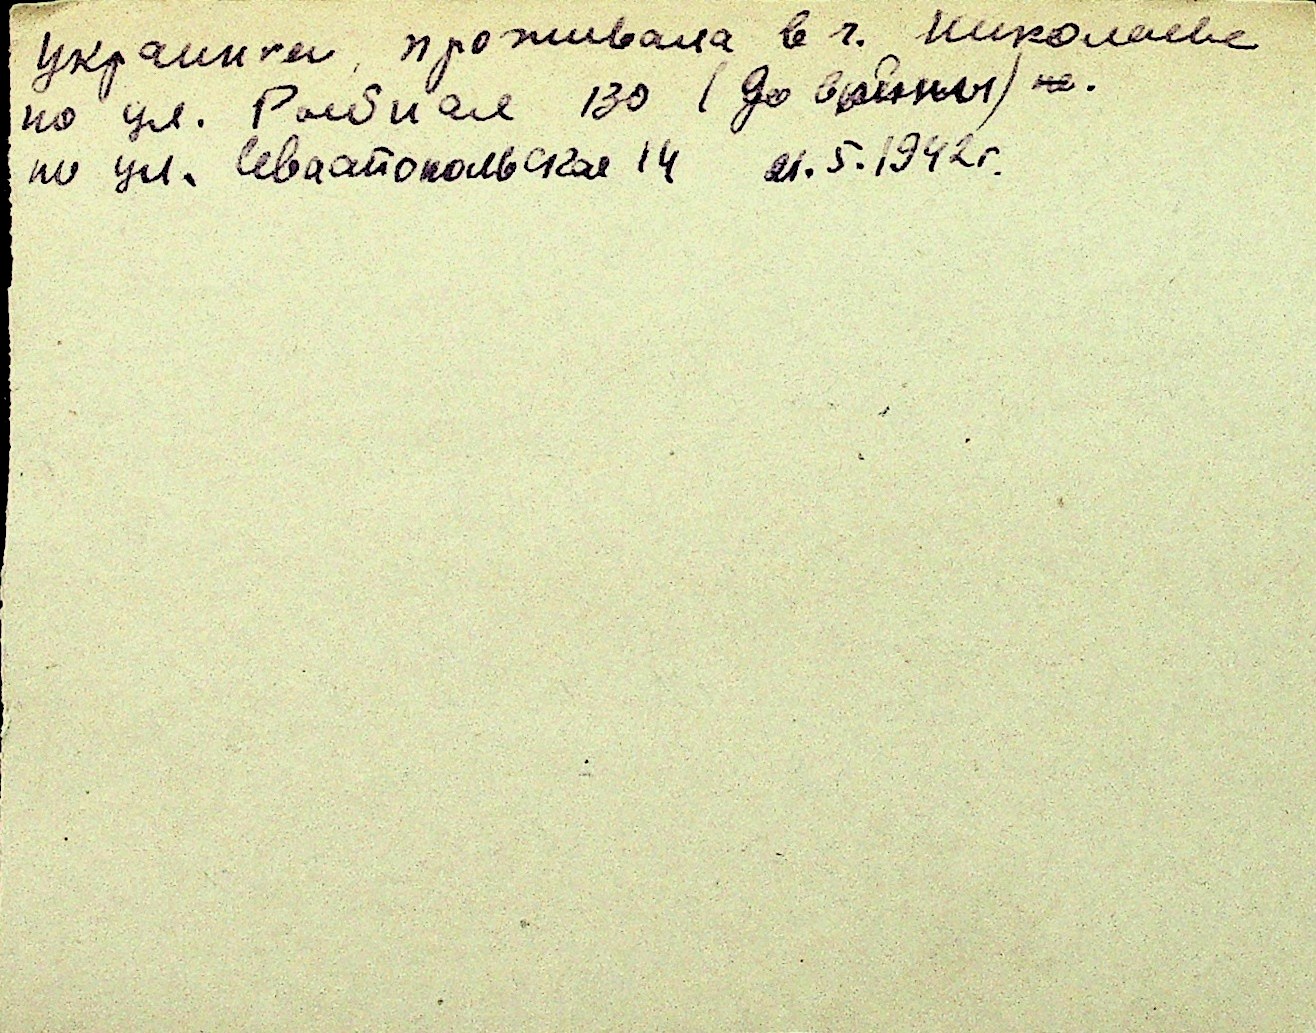 украинка, проживала в г. Николаеве
по ул. Рыбная 130 (до войны)
по ул. Севастопольская 14 21.5.1942г.